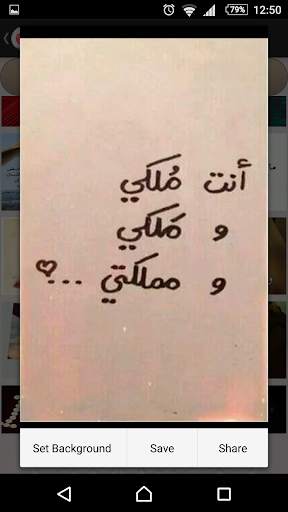 79% 12:50
أنت مُلكي
و مَلكي
و مملكتي ...♡
Set Background Save Share